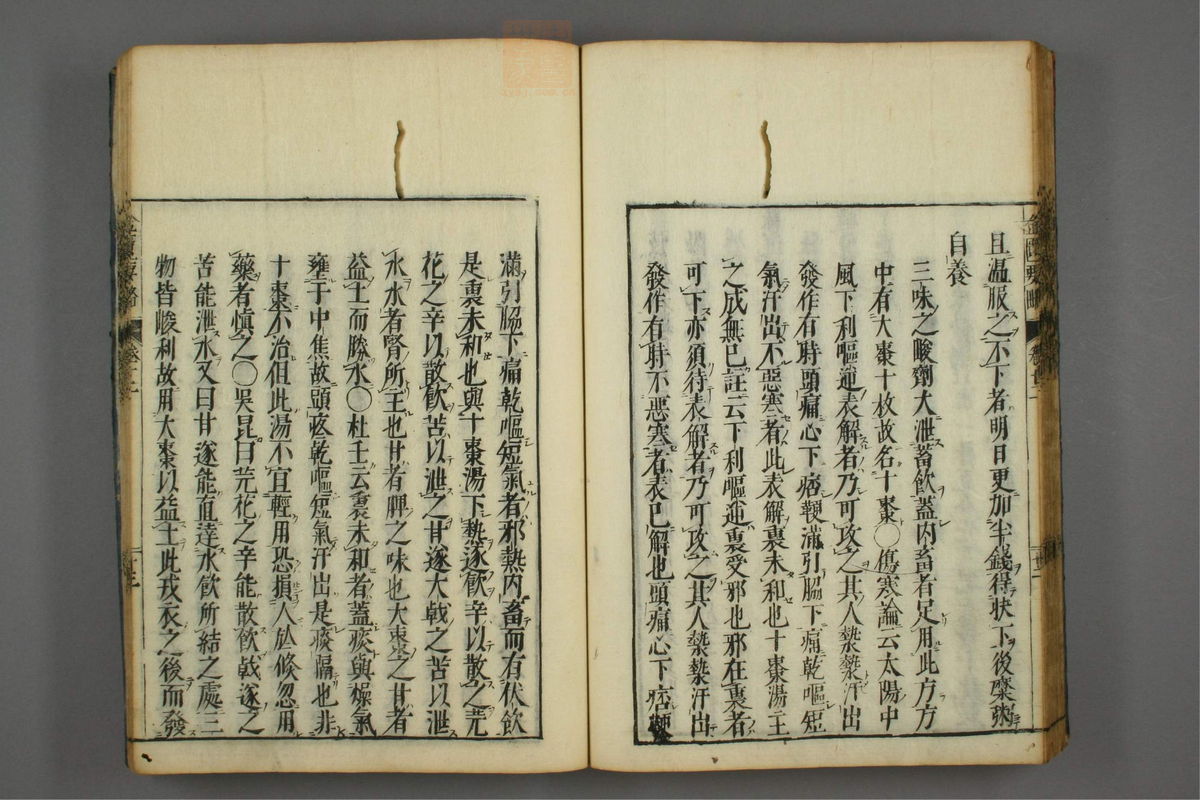 且温服之不下者明日更加半錢得快下後糜粥
自養
三味之峻劑大泄蓄飲蓋内畜者足用此方方
中有大棗十枚故名十棗〇傷寒論云太陽中
風下利嘔逆表解者乃可攻之其人漐漐汗出
發作有時頭痛心下痞鞕滿引脇下痛乾嘔短
氣汗出不惡寒者此表解裏未和也十棗湯主
之成無已註云下利嘔逆裏受邪也邪在裏者
可下亦須待表解者乃可攻之其人漐漐汗出
發作有時不惡寒者表已解也頭痛心下痞鞕
滿引脇下痛乾嘔短氣者邪熱内畜而有伏飲
是裏未和也與十棗湯下熱逐飲辛以散之芫
花之辛以散飲苦以泄之甘遂大戟之苦以泄
水水者腎所主也甘者脾之味也大棗之甘者
益土而勝水〇杜壬云裏未和者蓋痰與燥氣
壅于中焦故頭疼乾嘔短氣汗出是痰隔也非
十棗不治但此湯不宜輕用恐損人於倏忽用
藥者慎之〇吳昆曰芫花之辛能散飲戟遂之
苦能泄水又曰甘遂能直達水飲所結之處三
物皆峻利故用大棗以益土此戎衣之後而發